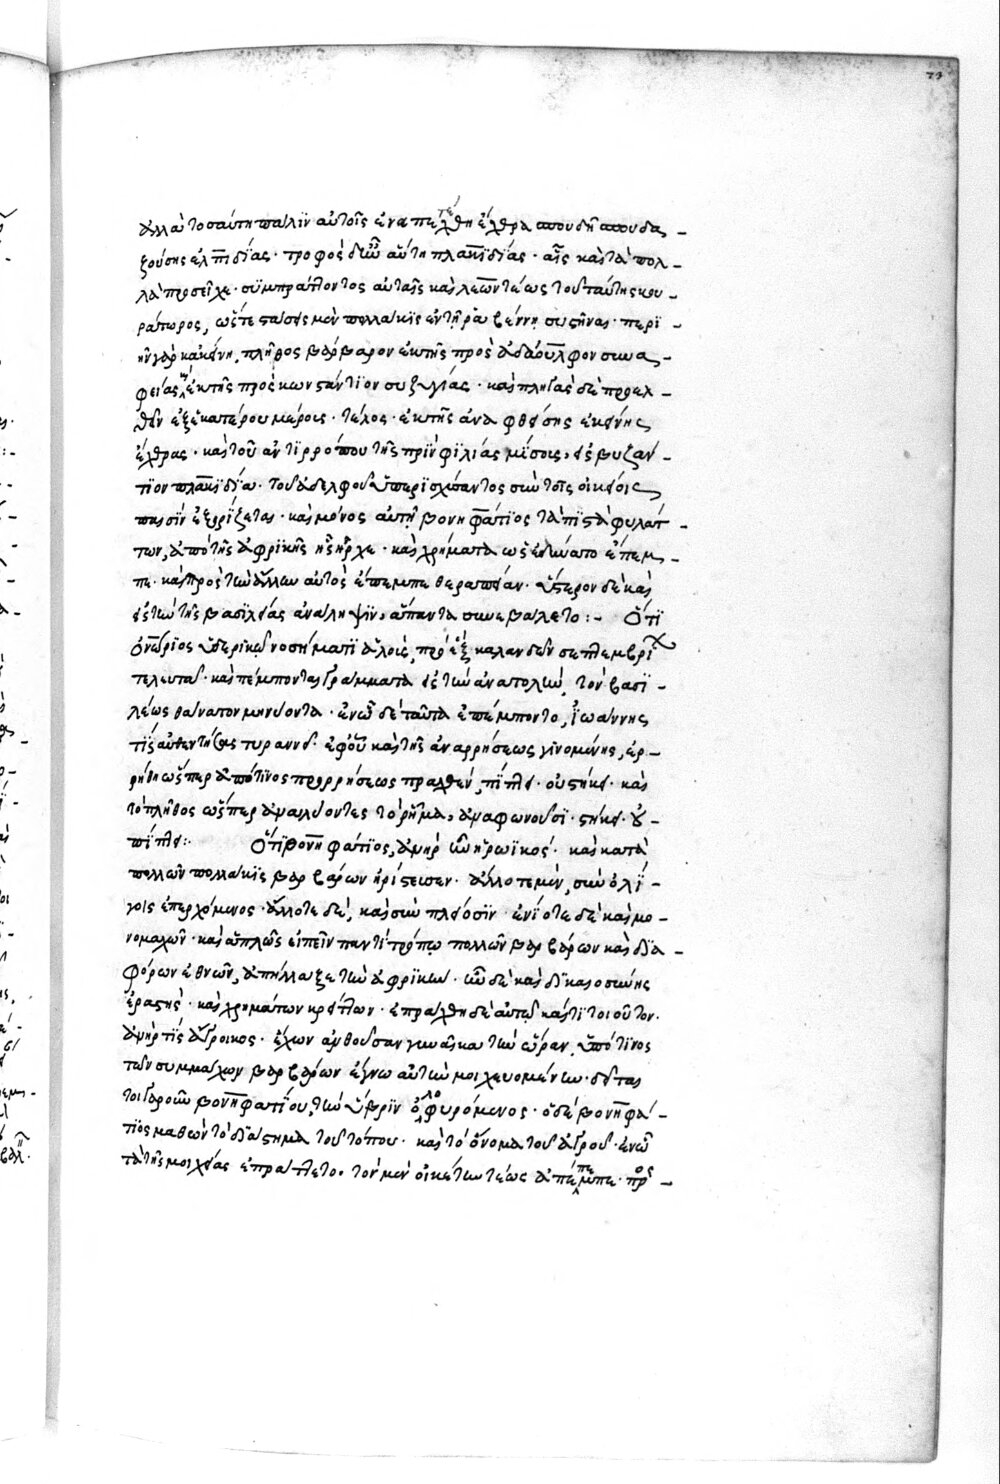 ἀλλὰ τοσαύτη πάλιν αὐτοῖς ἐναπετέχθη ἔχθρα σπουδῆ σπουδα-
ζούσης ἐλπιδίας· τροφὸς δὲ ἦν αὕτη πλακιδίας· αἷς κατὰ πολ-
λὰ προσεῖχε· συμπράττοντος αὐταῖς καὶ λεωντέως τοῦ ταύτης κου-
ράτωρος, ὥστε στάσεις μὲν πολλάκις ἐν τῆ ῥαβέννη συστῆναι· περι-
ῆν γὰρ κακείνη, πλῆθος βάρβαρον ἐκ τῆς πρὸς ἀδάουλφον συνα-
φείας καὶ ἐκ τῆς πρὸς κωνστάντιον συζυγίας· καὶ πληγὰς δὲ προελ-
θεῖν ἐξ ἑκατέρου μέρους· τέλος· ἐκ τῆς ἀναφθείσης ἐκείνης
ἔχθρας· καὶ τοῦ ἀντιρρόπου τῆς πρὶν φιλίας μίσους, εἰς βυζάν-
τιον πλακιδία· τοῦ ἀδελφοῦ ὑπερισχύσαντος σὺν τοῖς οἰκείοις
παισὶν ἐξορίζεται· καὶ μόνος αὐτῆ βονηφάτιος τὰ πιστὰ φυλάτ-
των, ἀπὸ τῆς ἀφρικῆς ἧς ἦρχε· καὶ χρήματα ὡς ἐδύνατο ἔπεμ-
πε· καὶ πρὸς τὴν ἄλλην αὐτὸς ἔπεμπε θεραπείαν· ὕστερον δὲ καὶ
εἰς τὴν τῆς βασιλείας ἀνάληψιν, ἅπαντα συνεβάλετο:– Ὅτι
ὀνώριος ὑδερικῶ νοσήματι ἁλοὺς, πρὸ ἓξ καλανδῶν σεπτεμβρίων
τελευτᾶ· καὶ πέμπονται γράμματα εἰς τὴν ἀνατολὴν, τὸν βασι-
λέως θάνατον μηνύοντα· ἐν ὧ δὲ ταῦτα ἐπέμποντο, ἰωάννης
τίς αὐθεντήσας τυραννεῖ· ἐφ' οὗ καὶ τῆς ἀναρρήσεως γινομένης, ἐρ-
ρήθη ὥσπερ ἀπό τινος προρρήσεως προαχθὲν, πίπτει· οὐ στήκει· καὶ
τὸ πλῆθος ὥσπερ ἀναλύοντες τὸ ῥῆμα, ἀναφωνοῦσι· στήκει· οὐ
πίπτει: Ὅτι βονηφάτιος, ἀνὴρ ἦν ἡρωϊκός· καὶ κατὰ
πολλῶν πολλάκις βαρβάρων ἠρίστευσεν· ἄλλοτε μὲν, σὺν ὀλί-
γοις ἐπερχόμενος· ἄλλοτε δὲ, καὶ σὺν πλείοσιν· ἐνίοτε δὲ καὶ μο-
νομαχῶν· καὶ ἁπλῶς εἰπεῖν παντὶ τρόπω πολλῶν βαρβάρων καὶ δια-
φόρων ἐθνῶν, ἀπήλλαξε τὴν ἀφρικήν· ἦν δὲ καὶ δικαιοσύνης
ἐραστὴς· καὶ χρημάτων κρείττων· ἐπράχθη δὲ αὐτῶ καί τι τοιοῦτον·
ἀνήρ τις ἄγροικος· ἔχων ἀνθοῦσαν γυναῖκα τὴν ὥραν, ὑπό τινος
τῶν συμμάχων βαρβάρων ἔγνω αὐτὴν μοιχευομένην· δεῖται
τοιγαροῦν βονηφατίου, τὴν ὕβριν ὀλοφυρόμενος· ὁ δὲ βονηφά-
τιος μαθὼν τὸ διάστημα τοῦ τόπου· καὶ τὸ ὄνομα τοῦ ἀγροῦ· ἐν ὧ
τὰ τῆς μοιχείας ἐπράττετο, τὸν μὲν οἰκέτην τέως ἀπέπεμπε· προσ-